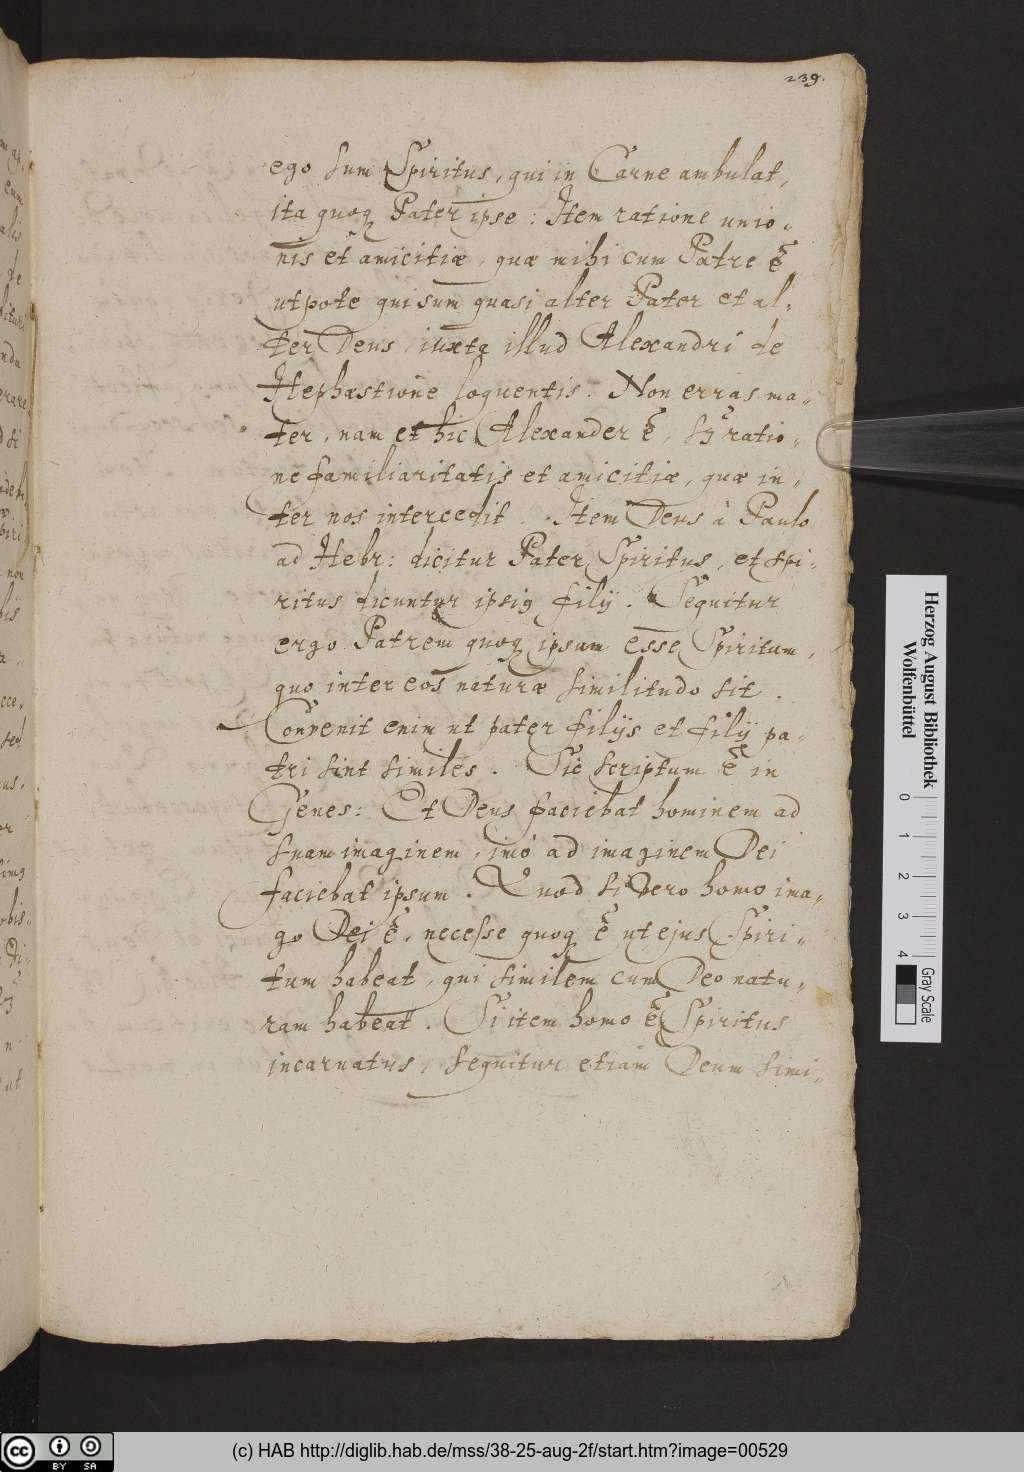 239.
ego sum Spiritus, qui in Carne ambulat,
ita quoq Pater ipse: Item ratione unio-
nis et amicitiæ, quæ mihi cum Patre ẽ
utpote qui sum quasi alter Pater et al-
ter Deus, iuxta illud Alexandri de
Hephæstione loquentis. Non erras ma-
ter, nam et hic Alexander ẽ, ratio-
ne familiaritatis et amicitiæ, quæ in-
ter nos intercedit. Item Deus à Paulo
ad Hebr: dicitur Pater Spiritus, et spi-
ritus dicuntur ipsiq filij. Sequitur
ergo Patrem quoq ipsum esse Spiritum,
quo inter eos naturæ similitudo sit.
Convenit enim ut pater filijs et filij pa-
tri sint similes. Sic scriptum ẽ in
Genes: Et Deus faciebat hominem ad
suam imaginem, imò ad imaginem Dei
faciebat ipsum. Quod si vero homo ima-
go Dei ẽ, necesse quoq ẽ ut ejus Spiri-
tum habeat, qui similem cum Deo natu-
ram habeat. Si item homo ẽ Spiritus
incarnatus, sequitur etiam Deum simi-
Herzog August Bibliothek
Wolfenbüttel
0 1 2 3 4
Gray Scale
cc BY SA
(c) HAB http://diglib.hab.de/mss/38-25-aug-2f/start.htm?image=00529